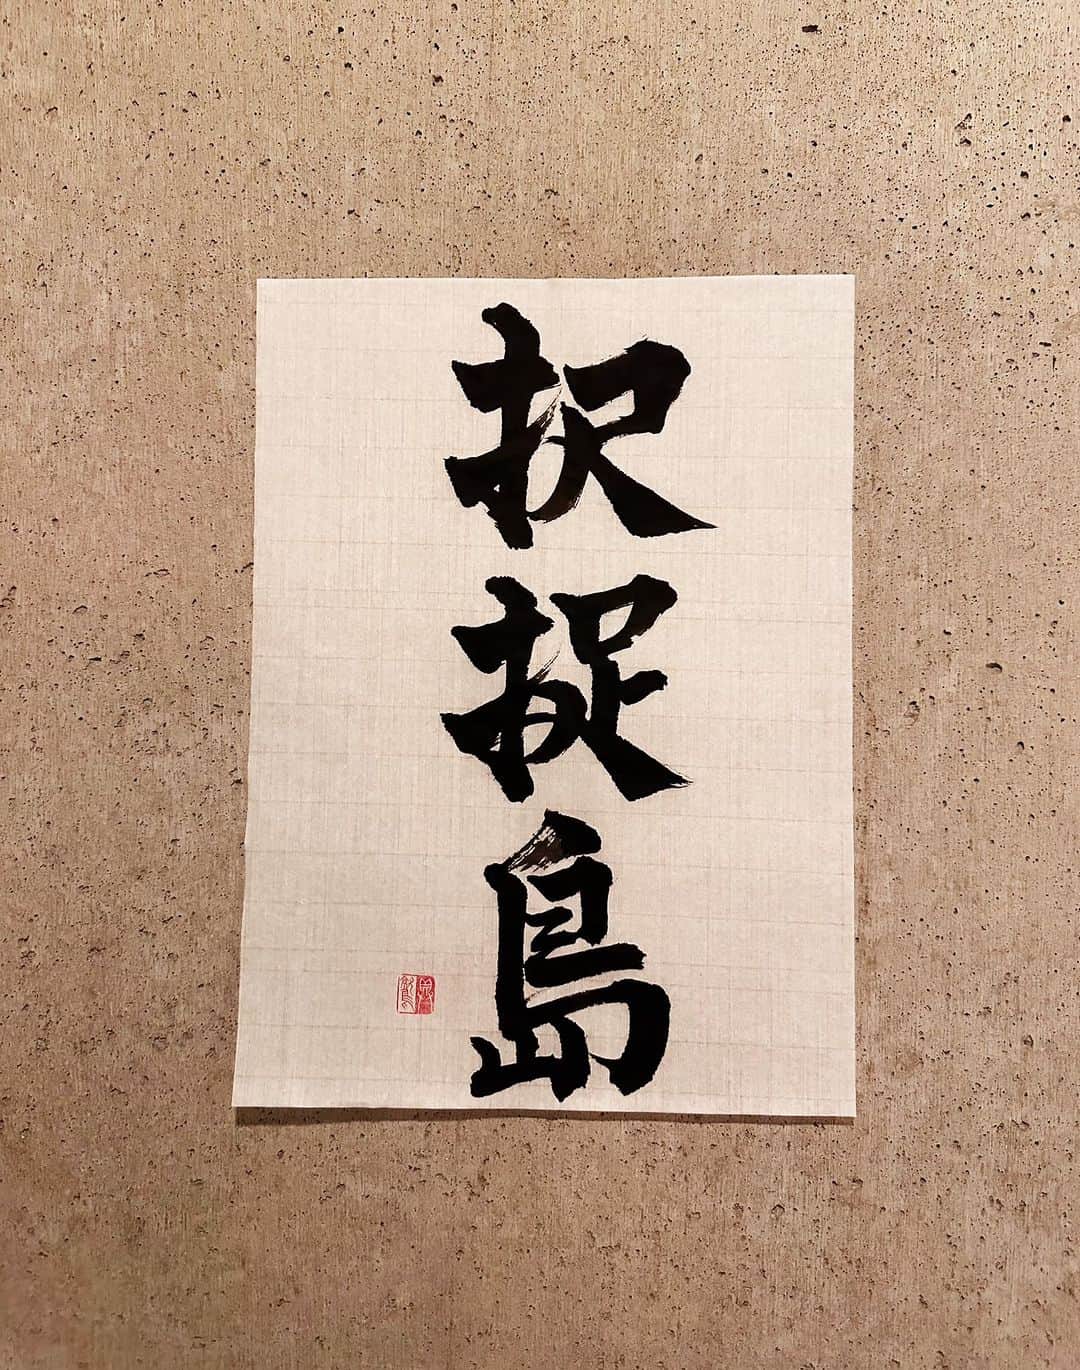 択捉島